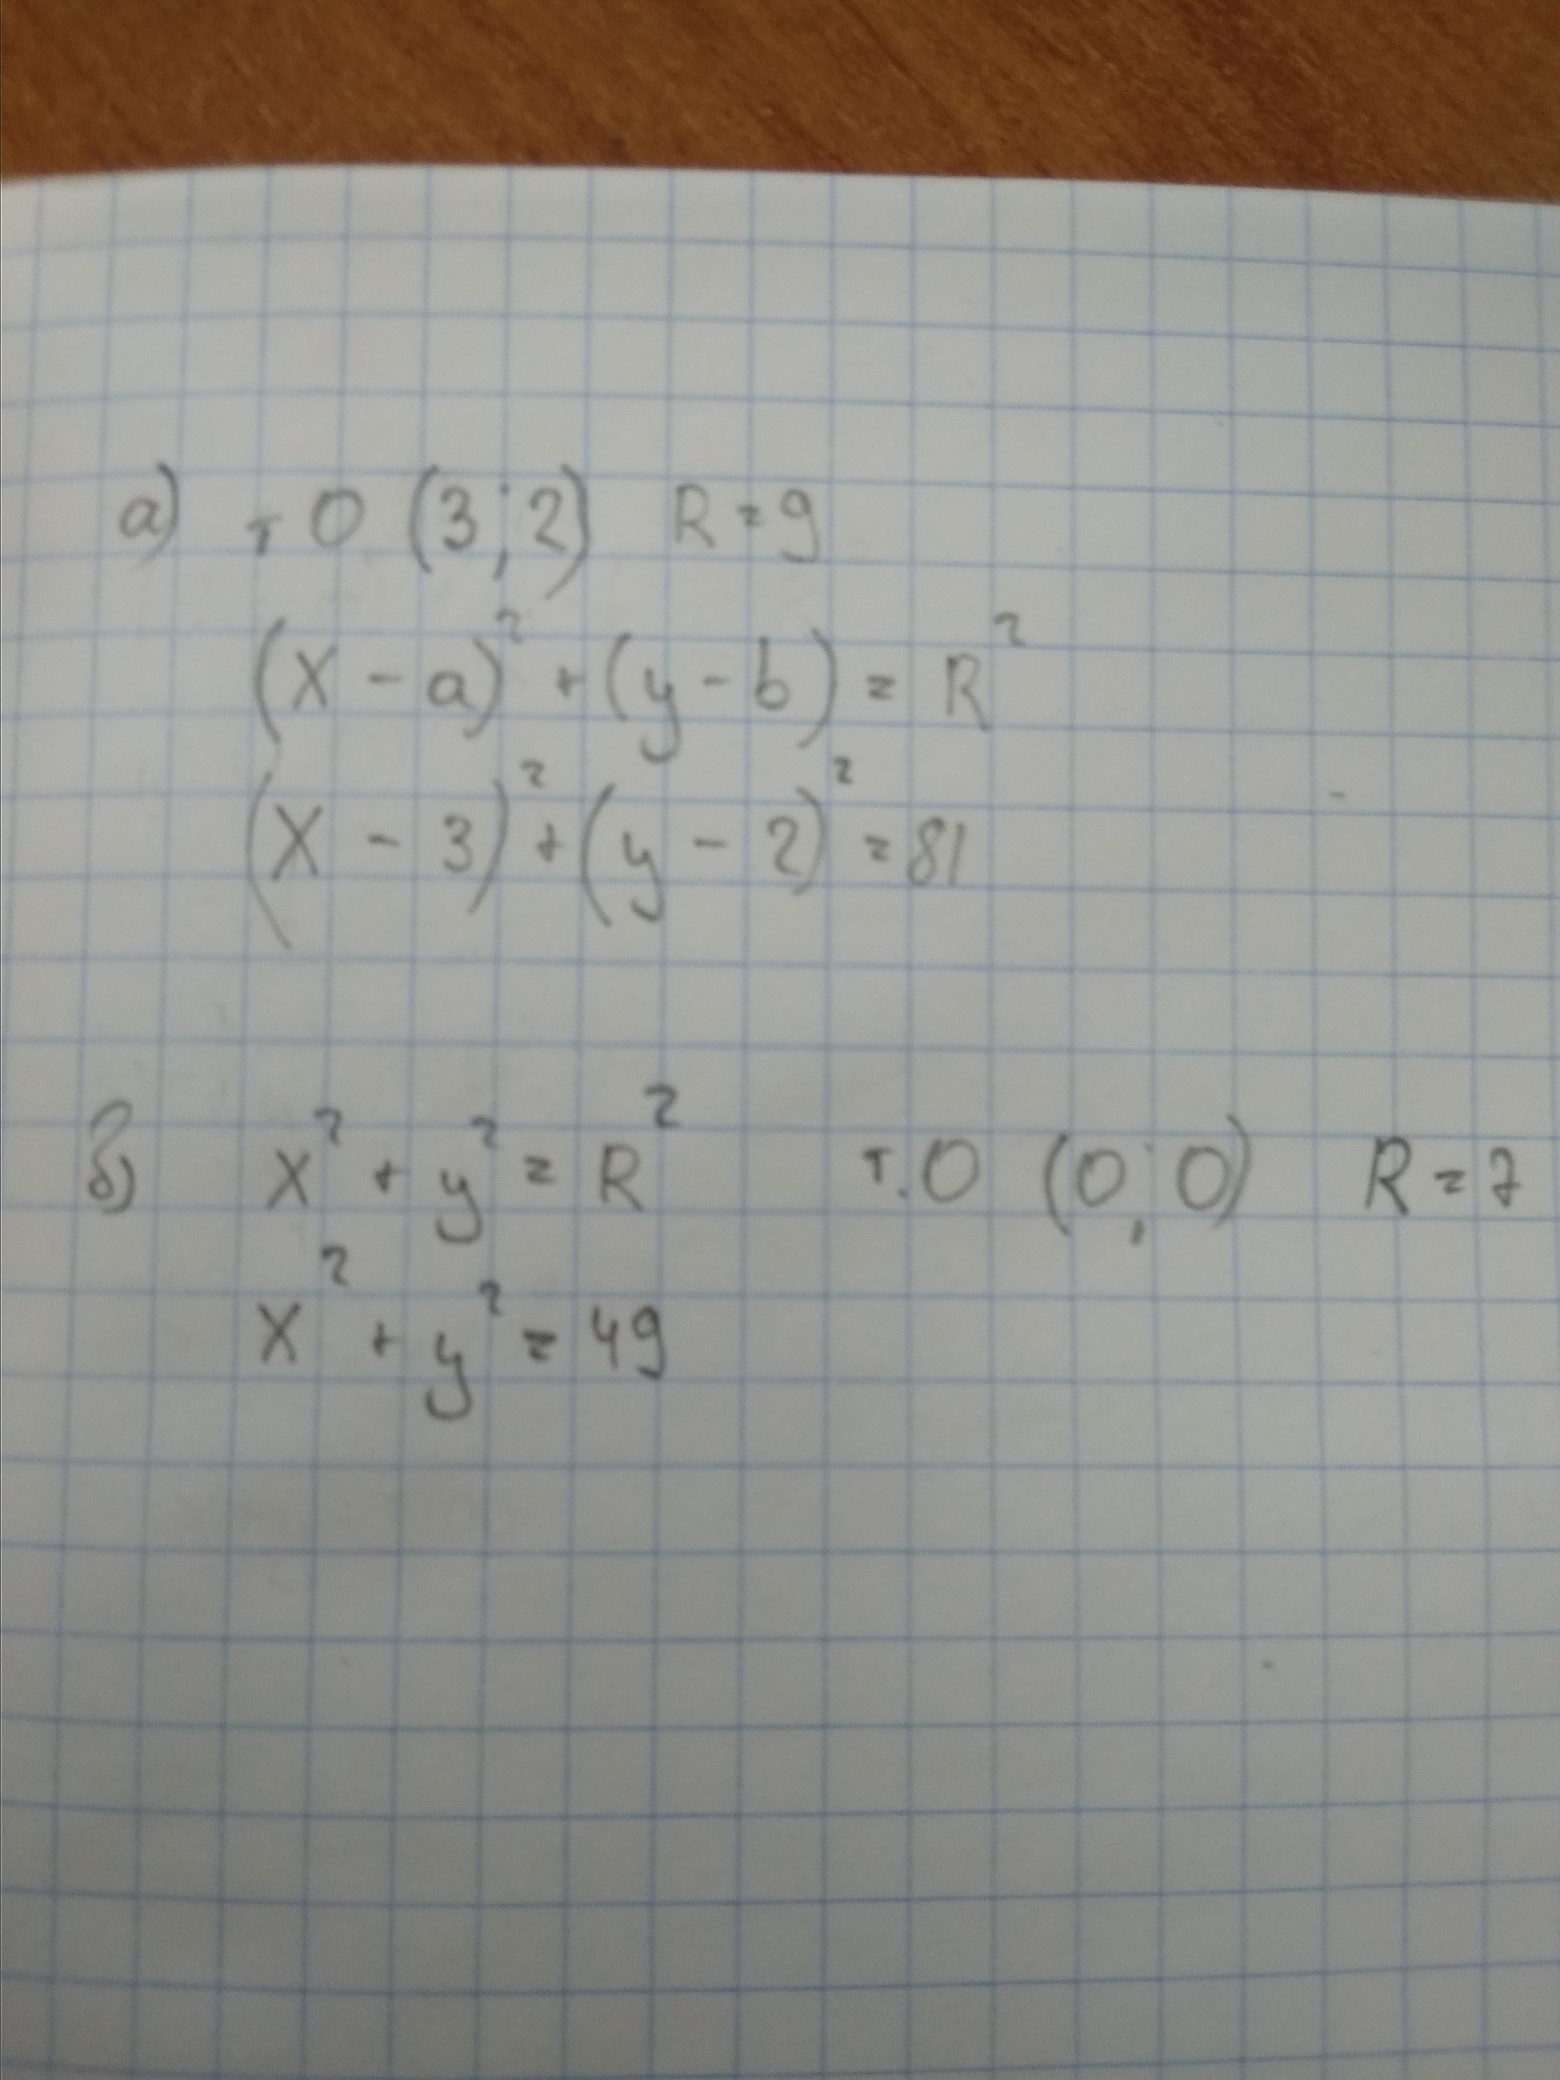 а) т О (3; 2) R = 9
(x - a)² + (y - b) = R²
(x - 3)² + (y - 2)² = 81
б) x² + y² = R² т. О (0; 0) R = 7
x² + y² = 49